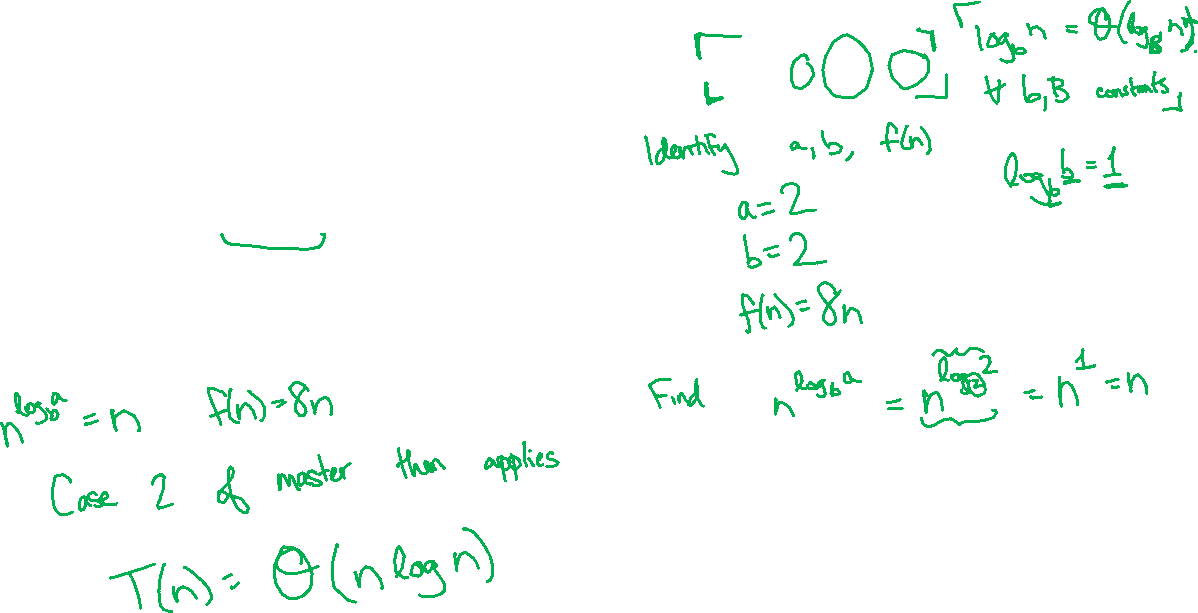 log_b n = Θ(log_B n)
∀ b,B constants
Identify a, b, f(n)
log_b b = 1
a = 2
b = 2
f(n) = 8n
Find n^{log_b a} = n^{log_2 2} = n^1 = n
n^{log_b a} = n f(n) = 8n
Case 2 of master thm applies
T(n) = Θ(n log n)